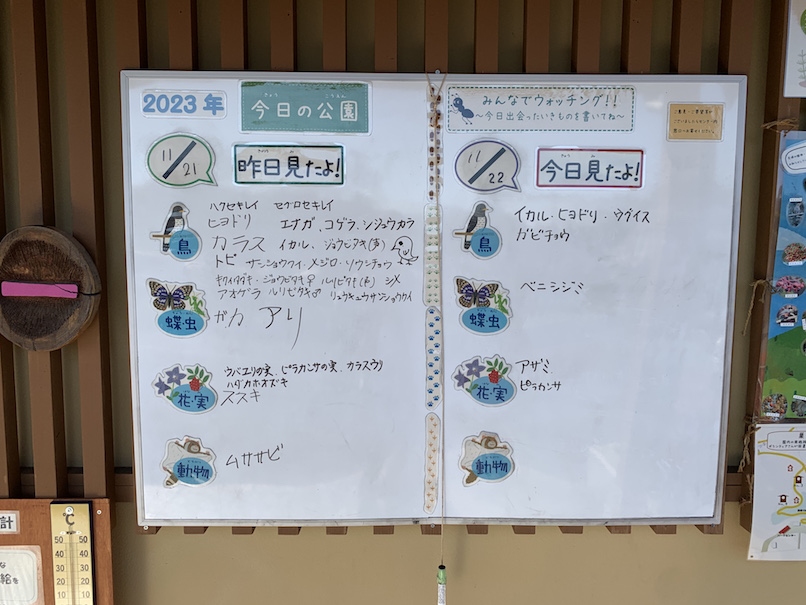 2023年
今日の公園
きょう こうえん
11/21
昨日見たよ!
鳥
ハクセキレイ セグロセキレイ
ヒヨドリ エナガ、コゲラ、シジュウカラ
カラス イカル、ジョウビタキ(♂)
トビ サンショウクイ・メジロ・ソウシチョウ
キクイタダキ・ジョウビタキ♀ ルリビタキ(♀) シメ
アオゲラ ルリビタキ♂ リュウキュウサンショウクイ
蝶・虫
ガガ アリ
花・実
ウバユリの実、ピラカンサの実、カラスウリ
ハダカホオズキ
ススキ
動物
ムササビ
みんなでウォッチング!!
~今日出会ったいきものを書いてね~
11/22
今日見たよ!
鳥
イカル・ヒヨドリ・ウグイス
ガビチョウ
蝶・虫
ベニシジミ
花・実
アザミ
ピラカンサ
動物
計
℃
50 50
40 40
30 30
20 20
10 10